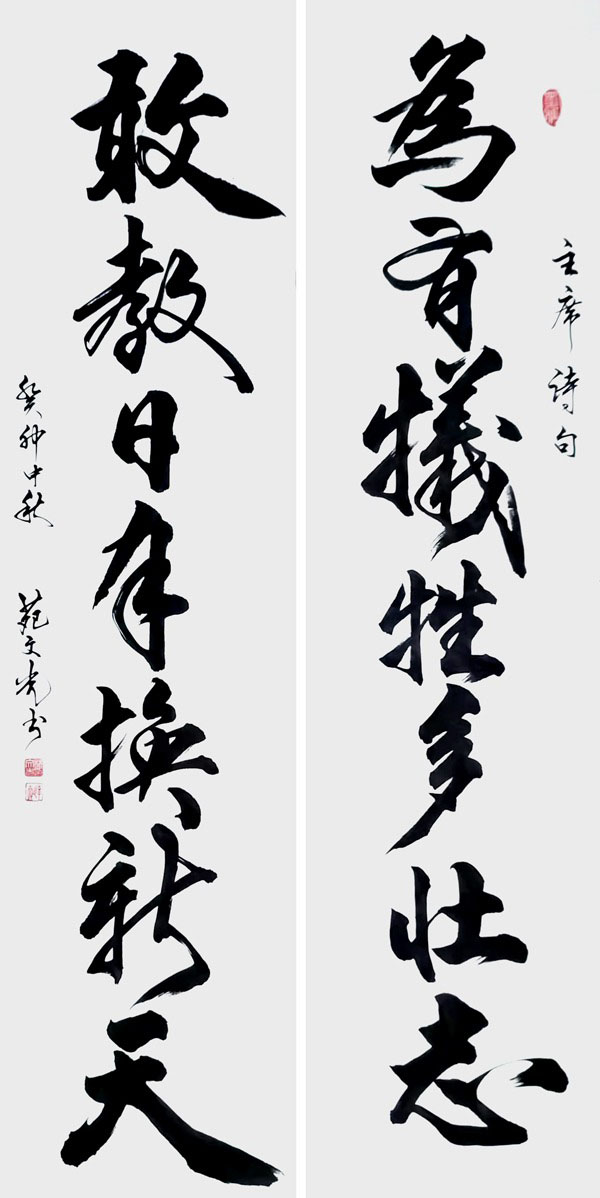 主席詩句
為有犧牲多壮志
敢教日年換新天
癸卯中秋 苑文光书